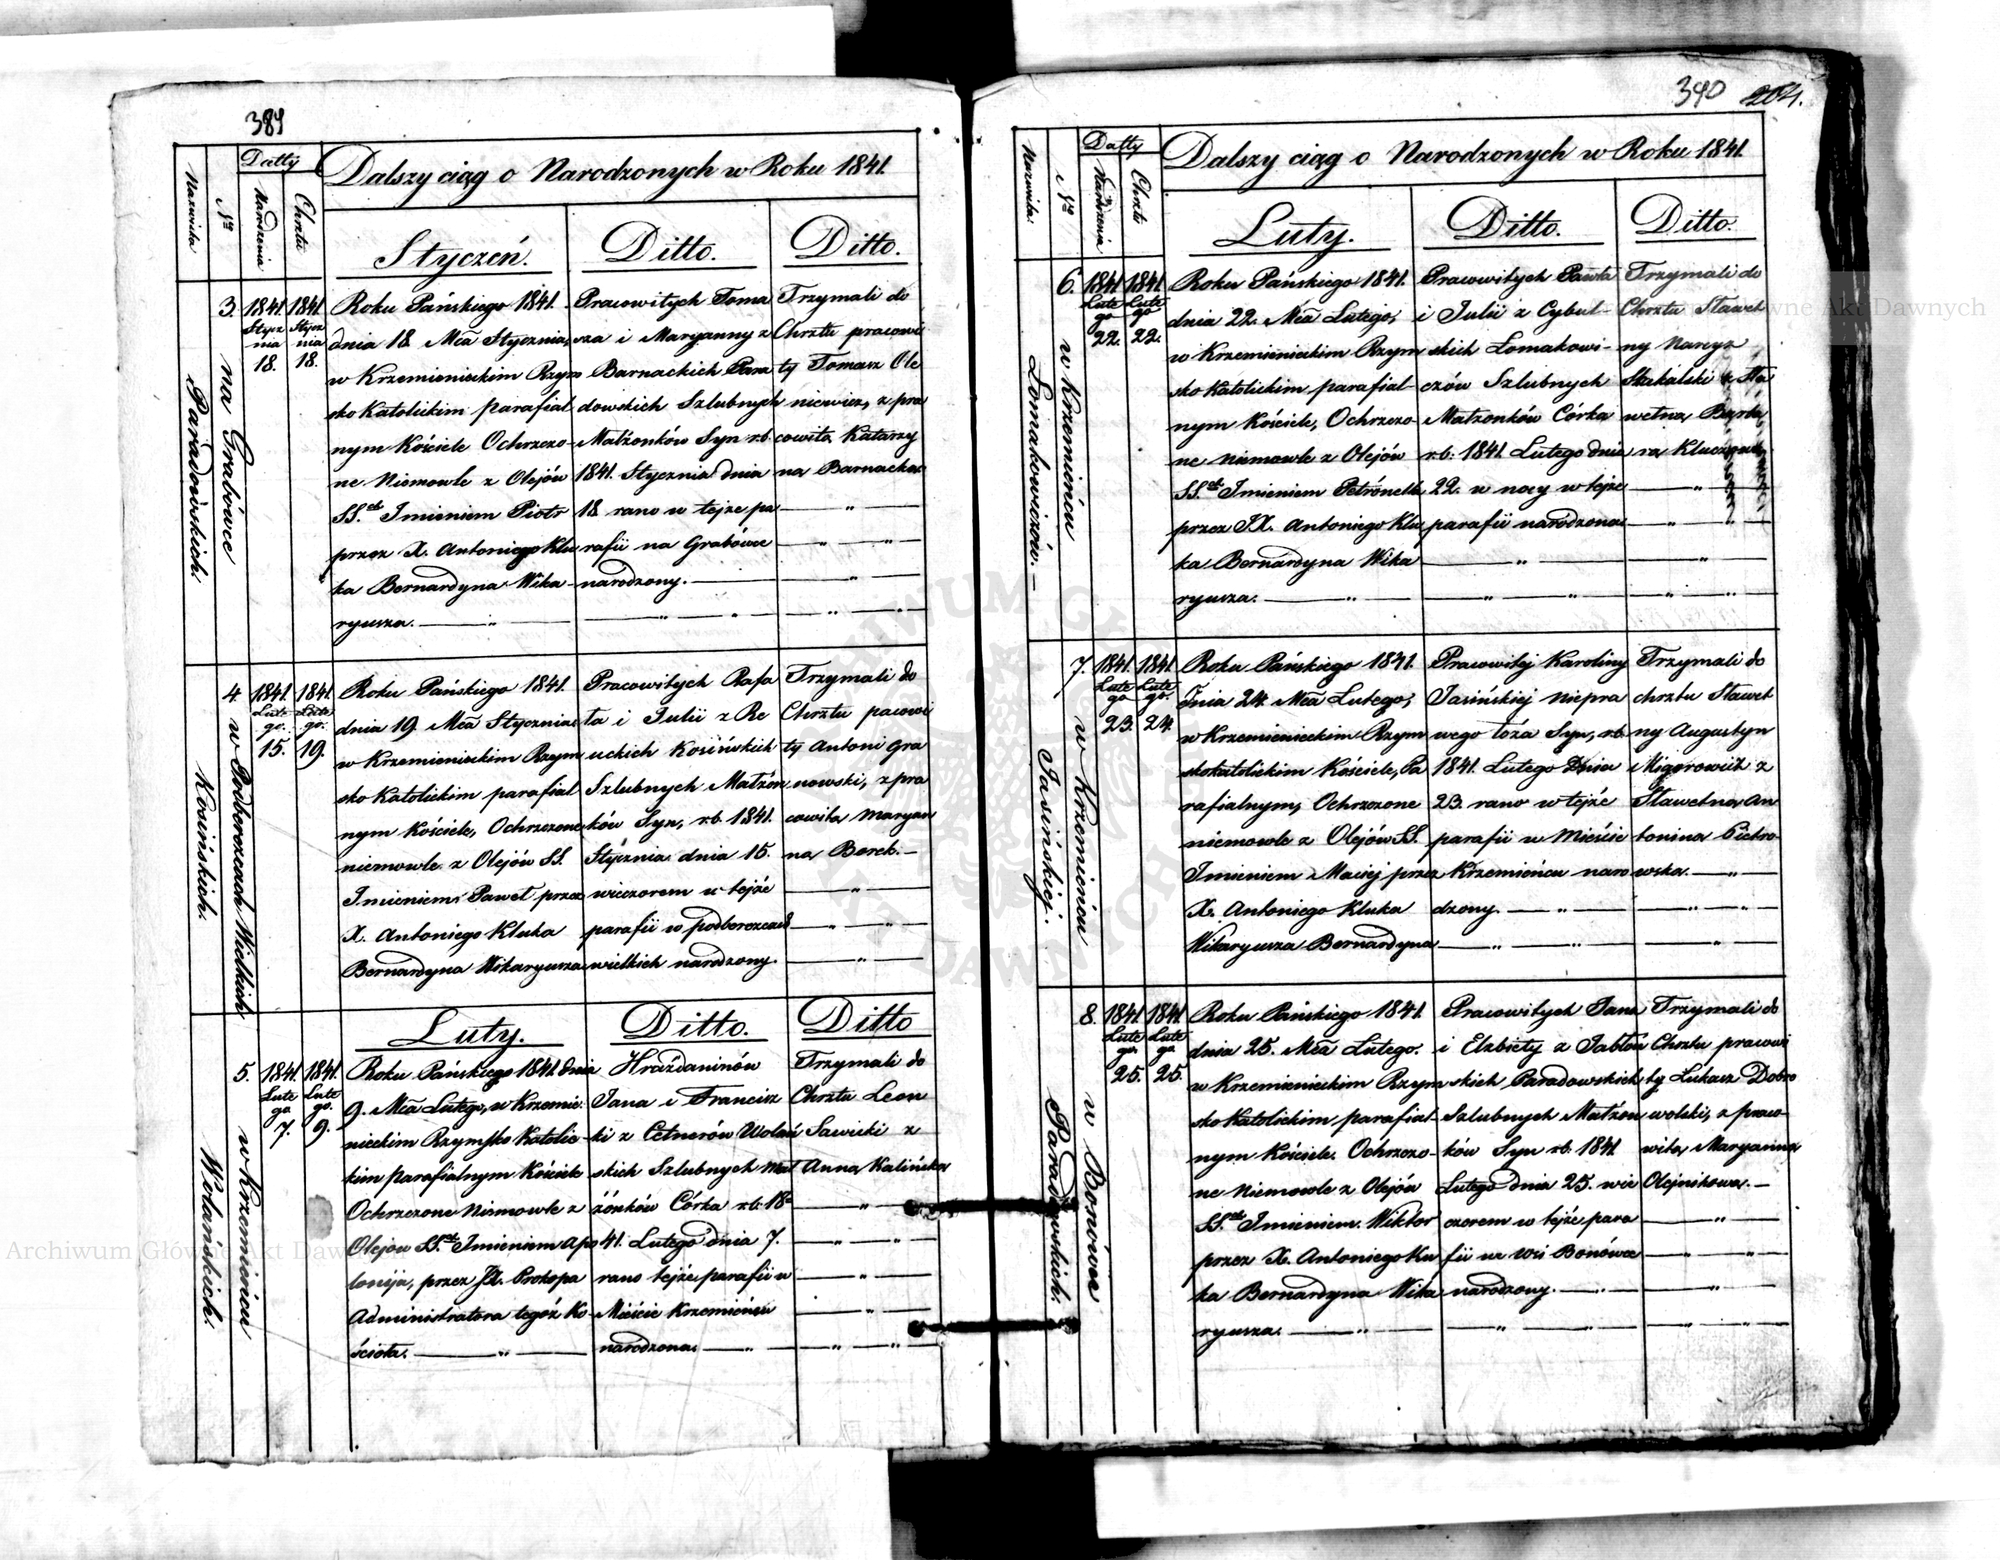 389
Datty
Dalszy ciąg o Narodzonych w Roku 1841.
Nazwiska
Nro
Narodzenia
Chrztu
Styczeń.
Ditto.
Ditto.
3.
na Grabówce
Paradowskich.
1841. Stycz nia 18.
1841. Stycz nia 18.
Roku Pańskiego 1841.
dnia 18 Mca Stycznia,
w Krzemienieckim Rzym
sko Katolickim parafial
nym Kościele Ochrzczo-
ne Niemowle z Olejów
SS. Imieniem Piotr
przez X. Antoniego Klu
ka Bernardyna Wika-
ryusza.
Pracowitych Toma
sza i Maryanny z
Barnackich Para
dowskich Szlubnych
Małżonków Syn r.b.
1841. Stycznia dnia
18 rano w tejże pa
rafii na Grabówce
narodzony.
Trzymali do
Chrztu pracowi
ty Tomasz Ole
niewicz, z pra
cowitą Katarzy
na Barnacka
4
w Podborczach Wielkich
Kosińskich.
1841. Lute- go. 15.
1841. Lute- go. 19.
Roku Pańskiego 1841.
dnia 19. Mca Stycznia
w Krzemienieckim Rzym
sko Katolickim parafial
nym Kościele, Ochrzczone
niemowle z Olejów SS.
Imieniem Paweł przez
X. Antoniego Kluka
Bernardyna Wikaryusza
Pracowitych Rafa
ła i Julii z Re
uckich Kosińskich
Szlubnych Małżon
ków Syn, r.b. 1841.
Stycznia dnia 15.
wieczorem w tejże
parafii w podborczach
wielkich narodzony.
Trzymali do
Chrztu pacowi
ty Antoni Gra
nowski, z pra
cowitą Maryan
na Borek.
Luty.
Ditto.
Ditto
5.
w Krzemieńcu
Wolańskich.
1841. Lute go 7.
1841. Lute go. 9.
Roku Pańskiego 1841. dnia
9. Mca Lutego, w Krzemie:
nieckim Rzymsko Katolic-
kim parafialnym Kościele
Ochrzczone Niemowle z
Olejow SS. Imieniem Apo
lonija, przez JX. Prokopa
Administratora tegoż Ko-
ścioła.
Hrażdaninów
Jana i Francisz
ki z Cetnerów Wolań
skich Szlubnych Mał
żonków Córka r.b. 18=
41. Lutego dnia 7.
rano tejże parafii w
Mieście Krzemieńcu
narodzona.
Trzymali do
Chrztu Leon
Sawicki z
Anną Kalińską
390 204.
Datty
Dalszy ciąg o Narodzonych w Roku 1841.
Nazwiska.
Nro
Narodzenia
Chrztu
Luty.
Ditto.
Ditto.
6.
w Krzemieńcu
Łomakowiczów.
1841. Lute go 22.
1841. Lute go 22.
Roku Pańskiego 1841.
dnia 22. Mca Lutego,
w Krzemienieckim Rzym
sko Katolickim parafial-
nym Kościele, Ochrzczo-
ne niemowle z Olejów
SS. Imieniem Petronella
przez JX. Antoniego Klu
ka Bernardyna Wika
ryusza.
Pracowitych Pawła
i Julii z Cybul-
skich Łomakowi-
czów Szlubnych
Małżonków Córka
r.b. 1841. Lutego dnia
22. w nocy w tejże
parafii narodzona.
Trzymali do
Chrztu Sławet
ny Narcyz
Skakalski z Sła
wetną Barba
ra
7.
w Krzemieńcu
Jasińskiej.
1841. Lute go 23.
1841. Lute go. 24.
Roku Pańskiego 1841.
dnia 24. Mca Lutego,
w Krzemienieckim Rzym
skokatolickim Kościele, Pa
rafialnym, Ochrzczone
niemowle z Olejów SS.
Imieniem Maciej przez
X. Antoniego Kluka
Wikaryusza Bernardyna
Pracowitej Karoliny
Jasińskiej niepra
wego łóża Syn, r.b.
1841. Lutego Dnia
23. rano w tejże
parafii w Mieście
Krzemieńcu naro
dzony.
Trzymali do
chrztu Sławet
ny Augustyn
Migorowicz z
Sławetną An
tonina Pietro
wska.
8.
w Bonówce
Paradowskich.
1841. Lute go. 25.
1841. Lute go 25.
Roku Pańskiego 1841.
dnia 25. Mca Lutego.
w Krzemienieckim Rzym
sko Katolickim parafial-
nym Kościele. Ochrzczo-
ne Niemowle z Olejów
SS. Imieniem. Wiktor
przez X. Antoniego Ku
ka Bernardyna Wika
ryusza.
Pracowitych Jana
i Elzbiety z Jabłoń
skich Paradowskich
Szlubnych Małżon
ków Syn r.b. 1841
Lutego dnia 25. wie
czorem w tejże para
fii we wsi Bonówce
narodzony.
Trzymali do
Chrztu pracowi
ty Łukasz Dobro
wolski, z praco-
witą Maryanną
Olejnikową.
Archiwum Główne Akt Dawnych